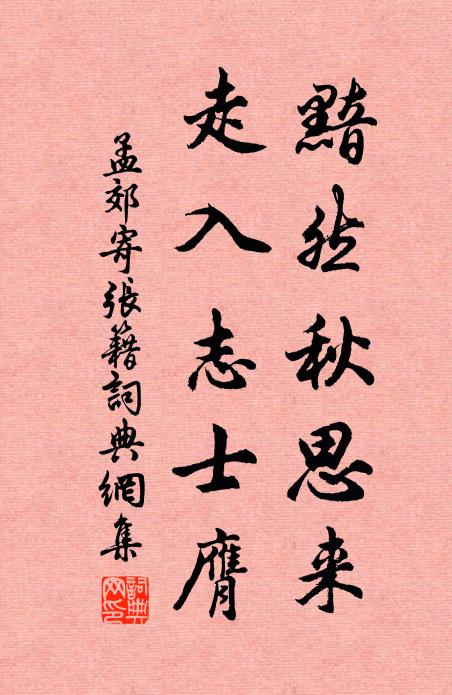 黯然秋思来
走入志士膺
孟郊寄張籍詞典網集
詞典网印